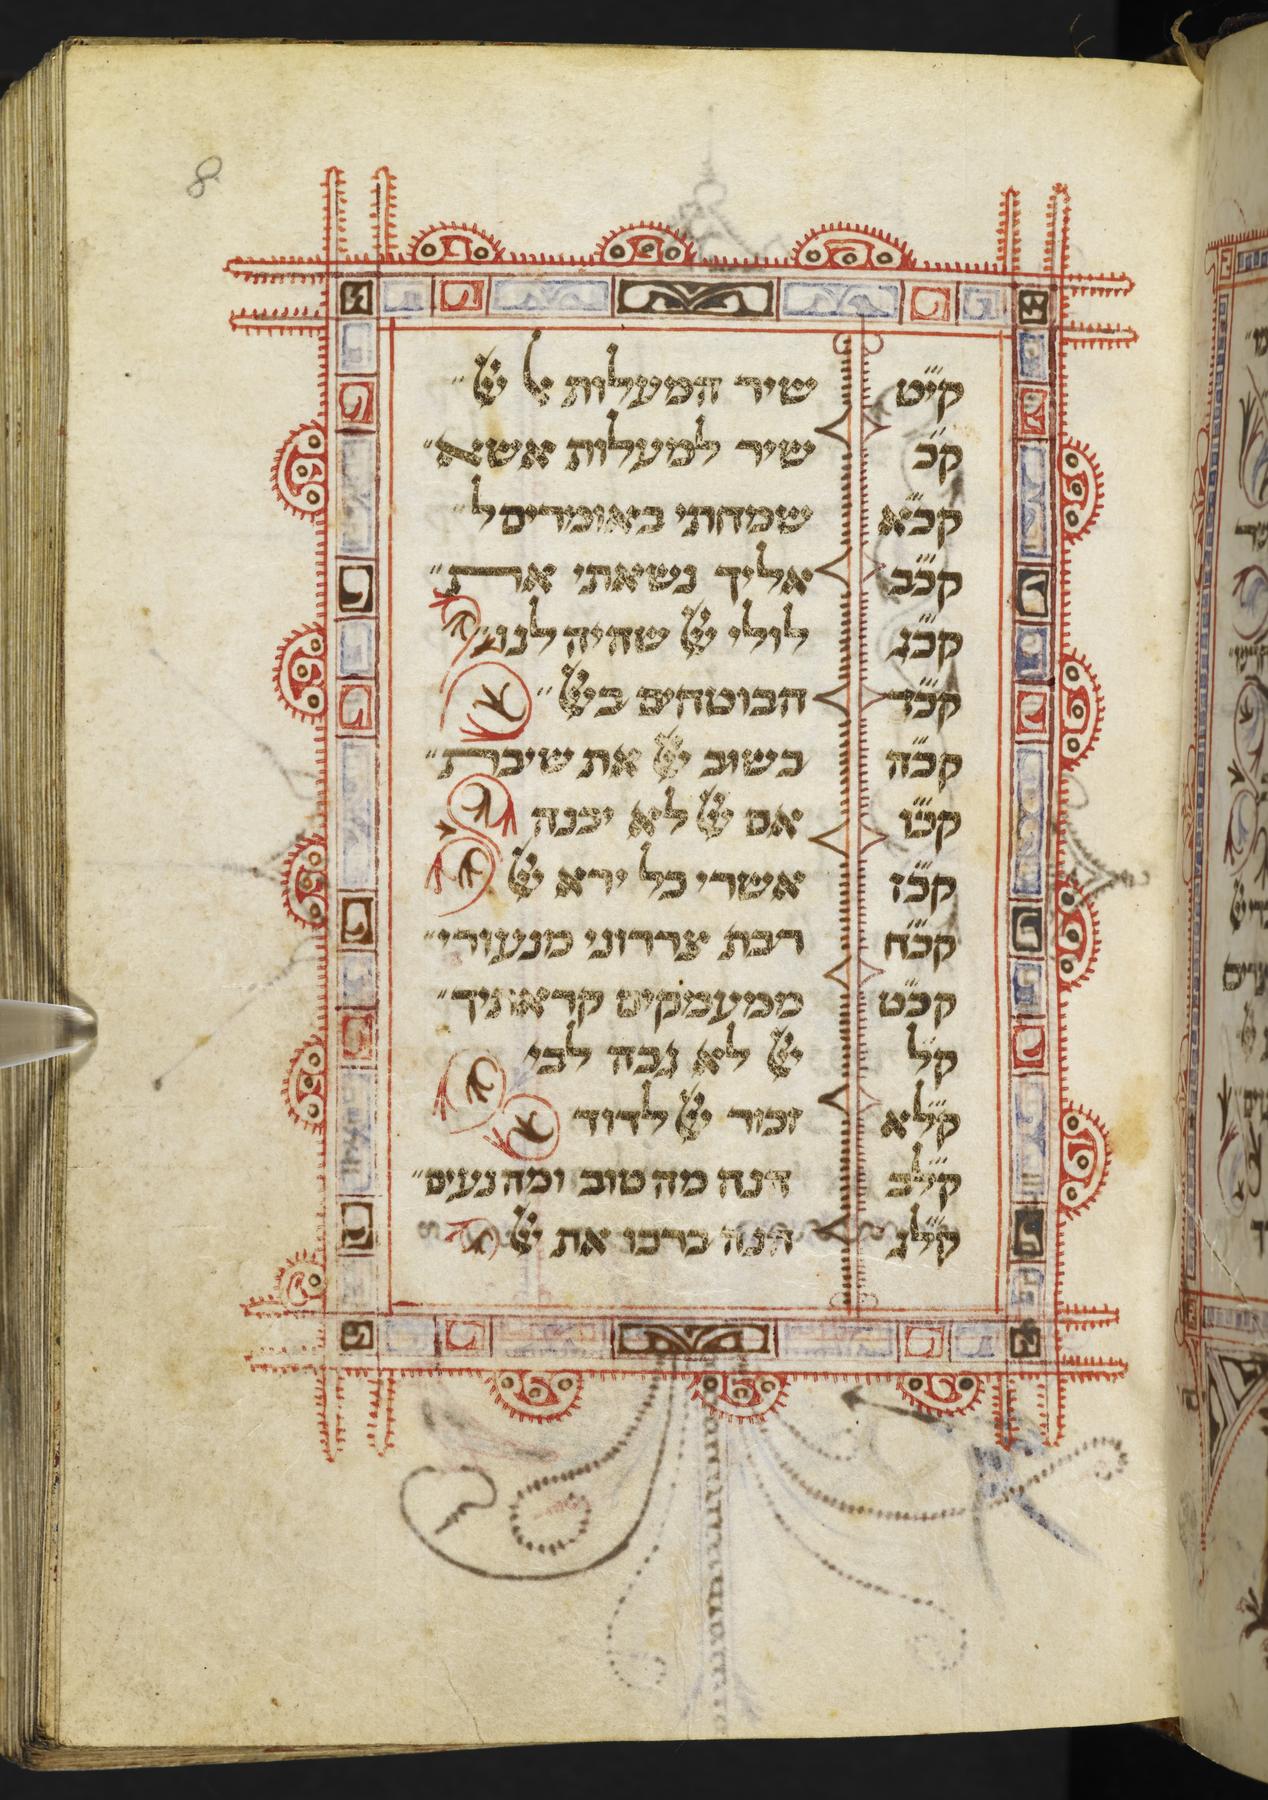 8
קי״ט שיר המעלות אל
ק״כ שיר למעלות אשא״
קכ״א שמחתי באומרים ל״
קכ״ב אליך נשאתי את״
קכ״ג לולי שהיה לנו״
קכ״ד הבוטחים ב״
קכ״ה בשוב את שיבת״
קכ״ו אם לא יבנה
קכ״ז אשרי כל ירא
קכ״ח רבת צררוני מנעורי״
קכ״ט ממעמקים קראתיך״
ק״ל לא גבה לבי
קל״א זכור לדוד
קל״ב הנה מה טוב ומה נעים״
קל״ג הנה ברכו את